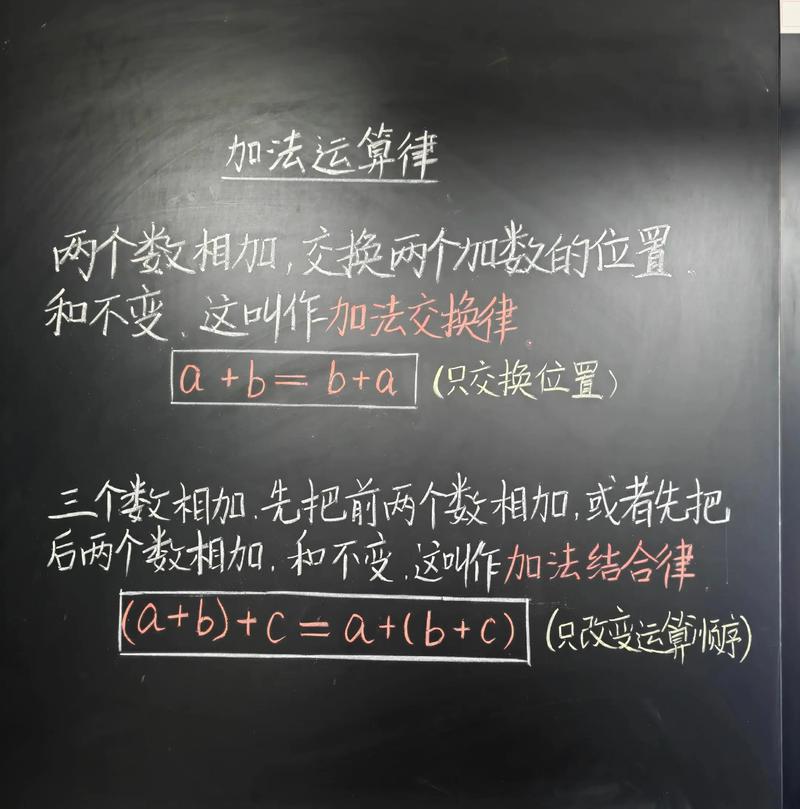 加法运算律
两个数相加,交换两个加数的位置
和不变、这叫作加法交换律.
a+b=b+a (只交换位置)
三个数相加.先把前两个数相加,或者先把
后两个数相加.和不变.这叫作加法结合律
(a+b)+c=a+(b+c) (只改变运算顺序)